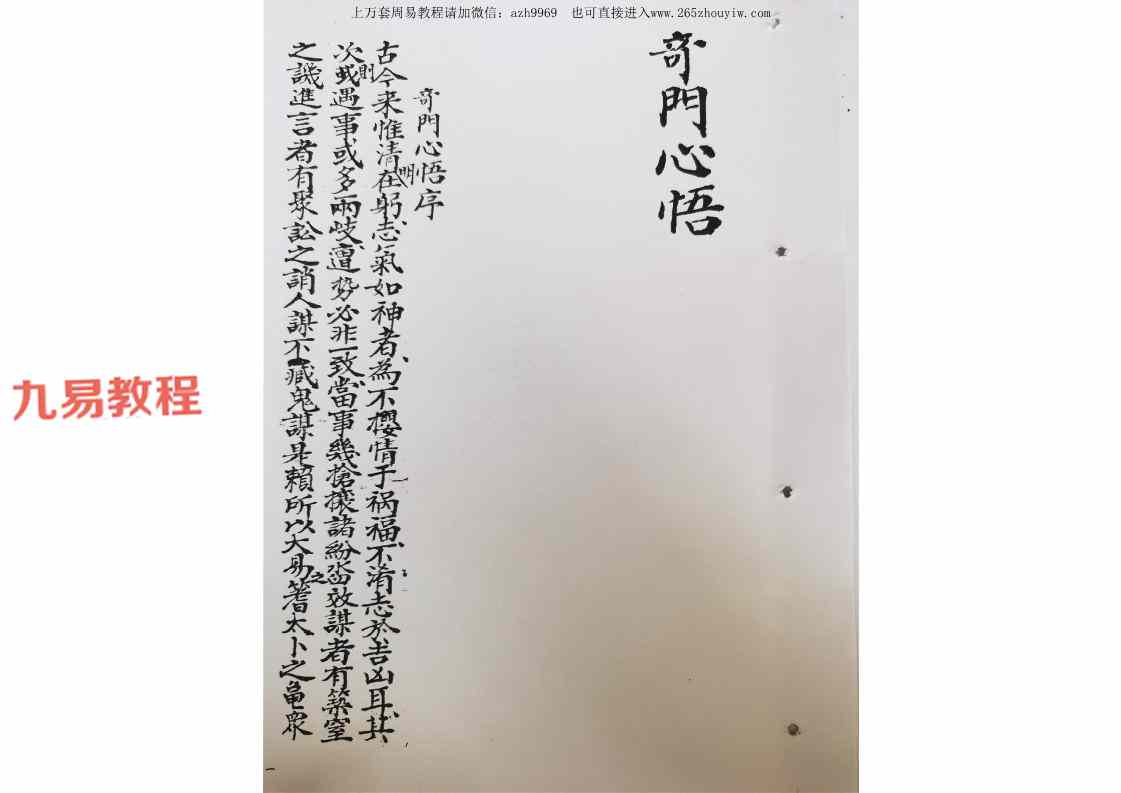 上万套周易教程请加微信：azh9969 也可直接进入www.265zhouyiw.com
奇門心悟
奇門心悟序
古今来惟清明在躬志氣如神者為不櫻情于祸福不淆志於吉凶耳其
次則或遇事或多兩岐遭勢必非一致當事幾搶攘諸紛沓效謀者有築室
之譏進言者有聚訟之誚人謀不臧鬼謀是賴所以大易之蓍太卜之龜眾
九易教程